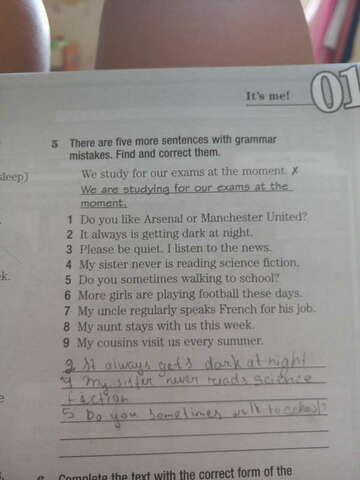 It's me! 01
5 There are five more sentences with grammar
mistakes. Find and correct them.
sleep)
We study for our exams at the moment. ✗
We are studying for our exams at the
moment.
1 Do you like Arsenal or Manchester United?
2 It always is getting dark at night.
3 Please be quiet. I listen to the news.
4 My sister never is reading science fiction.
k.
5 Do you sometimes walking to school?
6 More girls are playing football these days.
7 My uncle regularly speaks French for his job.
8 My aunt stays with us this week.
9 My cousins visit us every summer.
2 It always gets dark at night
My sister never reads science
fiction
5 Do you sometimes walk to school?
6 Complete the text with the correct form of the